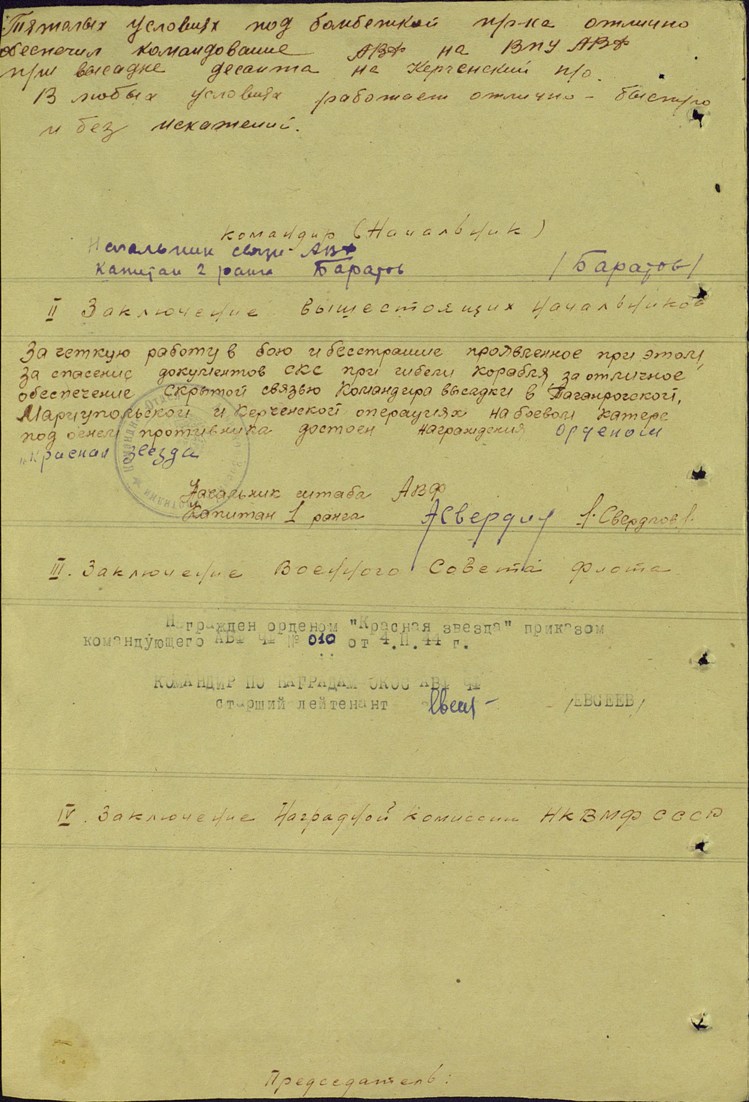 Тяжелых условиях под бомбежкой пр-ка отлично
обеспечил командование АВФ на ВПУ АВФ
при высадке десанта на Керченский п/о.
В любых условиях работает отлично - быстро
и без искажений.
Командир (Начальник)
Начальник связи АВФ
Капитан 2 ранга Баратов /Баратов/
II Заключение вышестоящих Начальников
За четкую работу в бою и бесстрашие проявленное при этом,
за спасение документов СКС при гибели корабля, за отличное
обеспечение скрытой связью Командира высадки в Таганрогской,
Мариупольской и Керченской операциях на боевом катере
под огнем противника достоин награждения Орденом
„Красная Звезда
Начальник штаба АВФ
Капитан 1 ранга АСвердлов /.Свердлов/.
III. Заключение Военного Совета флота
Награжден орденом "Красная звезда" приказом
командующего АВФ ЧФ № 010 от 4.II.44 г.
КОМАНДИР ПО НАГРАДАМ ОКОС АВФ ЧФ
старший лейтенант /ЕВСЕЕВ/
IV. Заключение Наградной Комиссии НКВМФ СССР
Председатель: